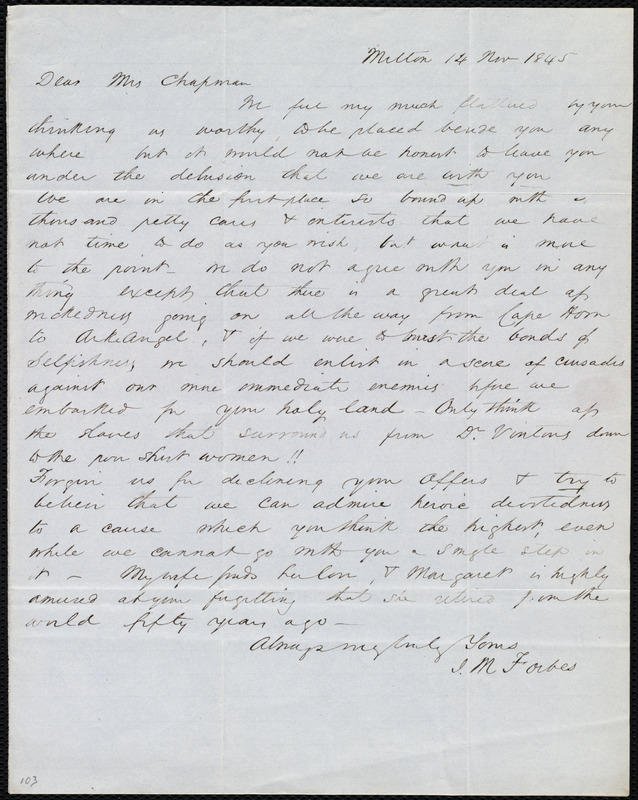 Milton 12 Nov 1845
Dear Mrs Chapman
We feel very much flattered by your
thinking us worthy to be placed beside you any
where but it would not be honest to leave you
under the delusion that we are with you
We are in the first place so bound up with a
thousand petty cares & interests that we have
not time to do as you wish, but what is more
to the point - we do not agree with you in any
thing except that there is a great deal of
wickedness going on all the way from Cape Horn
to ArkeAngel, & if we were to burst the bonds of
Selfishness we should enlist in a score of crusades
against our more immediate enemies before we
embarked for your holy land - Only think of
the slaves that surround us from Dr. Vintons down
to the poor shirt women !!
Forgive us for declining your offers & try to
believe that we can admire heroic devotedness
to a cause which you think the highest, even
while we cannot go with you a single step in
it - My wife sends her love, & Margaret is highly
amused at your forgetting that she retired from the
world fifty years ago -
Always very truly Yours
J. M. Forbes
103